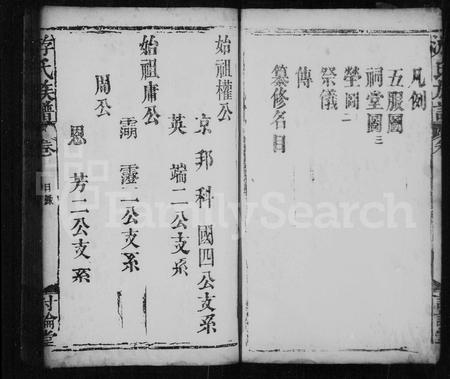 凡例
五服圖
祠堂圖三
塋圖二
祭儀
傳
纂修名目
始祖權公
京邦科國四公支系
英端二公支系
始祖庸公
霸靈二公支系
周公
恩芳二公支系
游氏族譜
卷
目錄
討論堂
FamilySearch